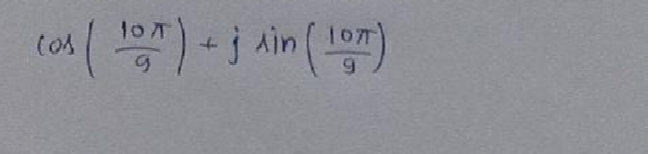 cos ( 10π/9 ) + j sin ( 10π/9 )